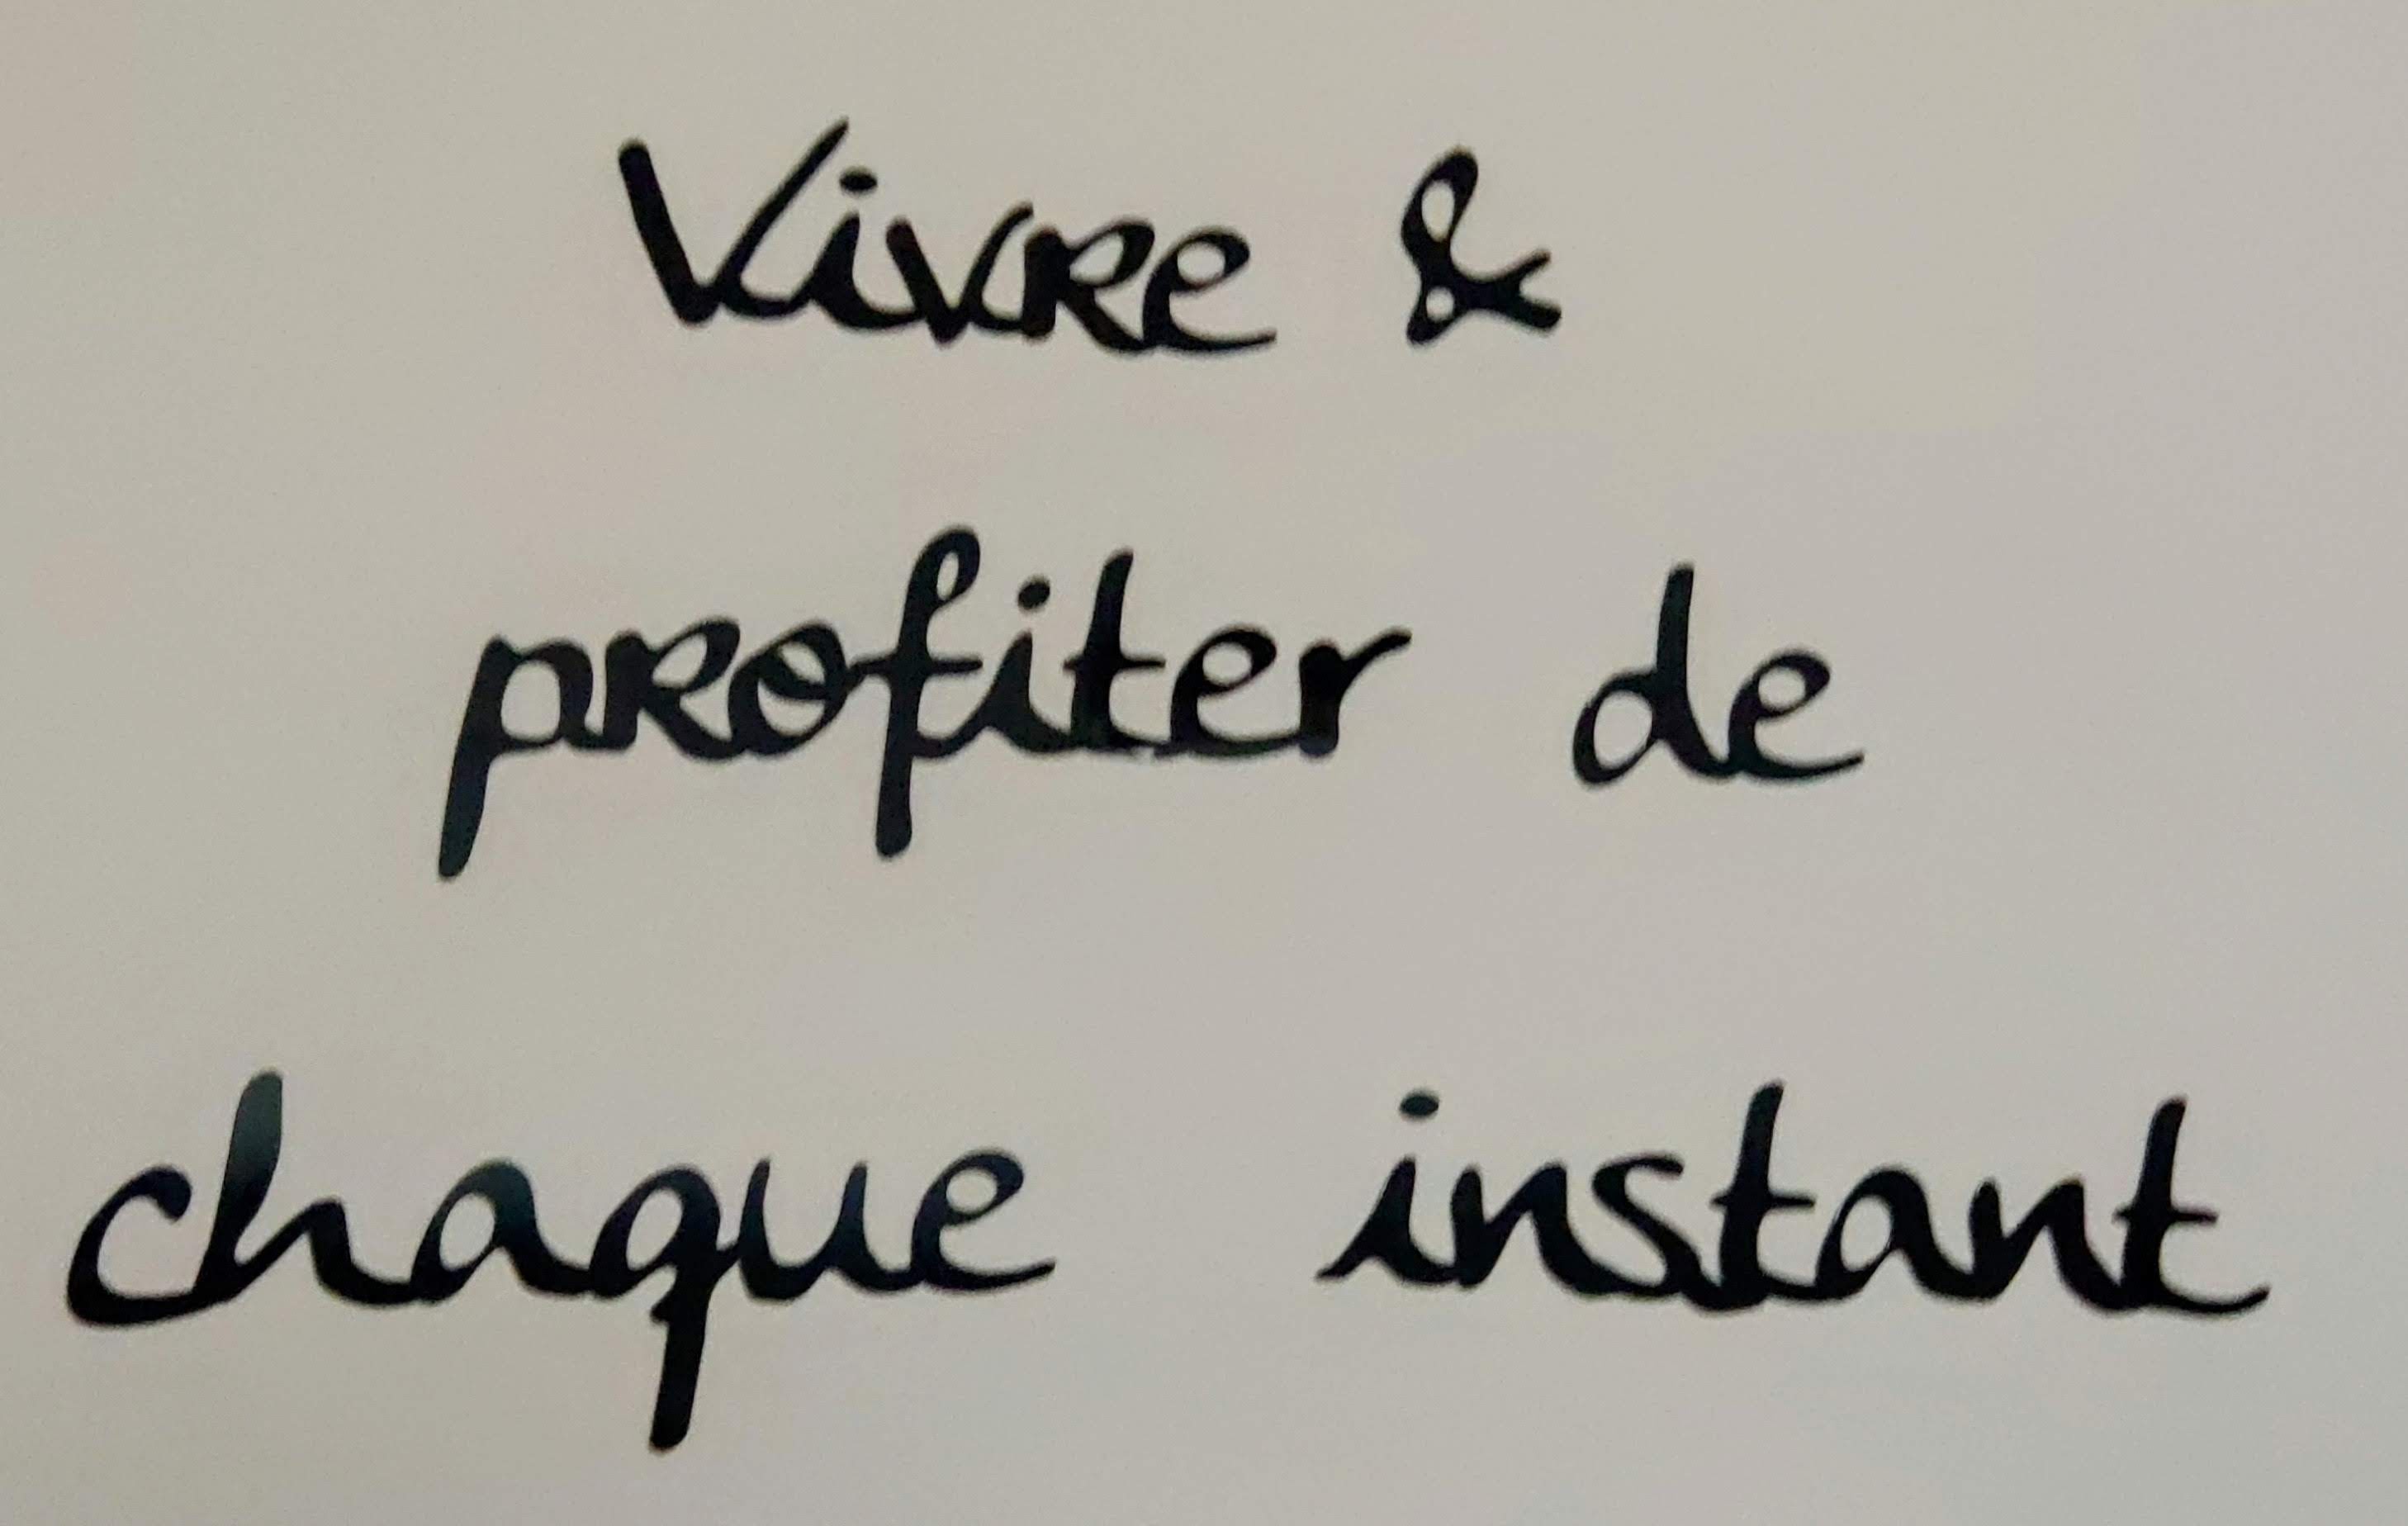 Vivre &
profiter de
chaque instant